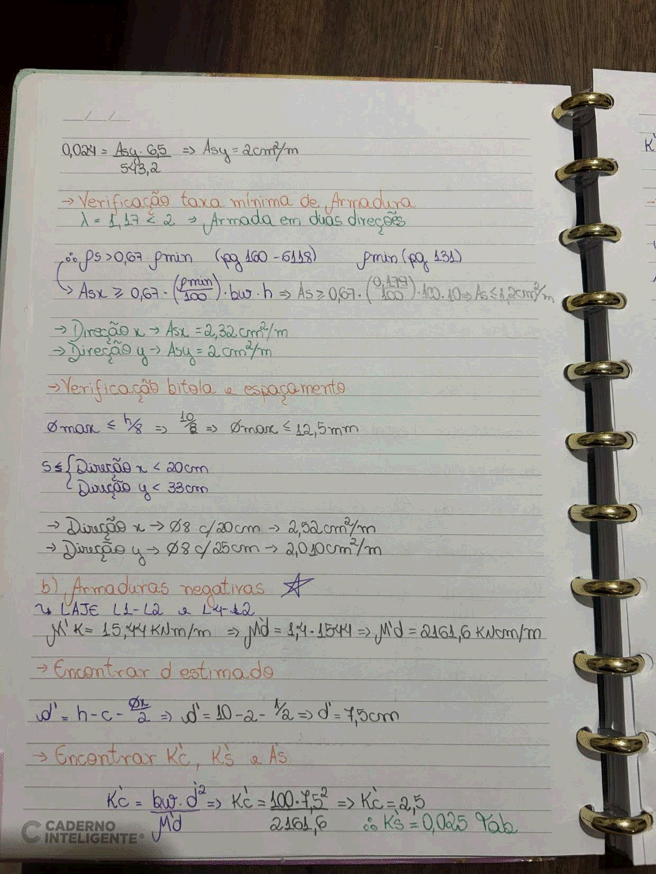 0,024 = Asy · 6,5 / 543,2 ⇒ Asy = 2cm²/m
→ Verificação taxa mínima de Armadura
λ = 1,17 < 2 ⇒ Armada em duas direções
∴ ρs > 0,67 ρmin (pg 160 - 6118) ρmin (pg 131)
→ Asx ≥ 0,67 · (ρmin/100) · bw · h ⇒ As ≥ 0,67 · (0,179/100) · 100 · 10 ⇒ As ≤ 1,2cm²/m
→ Direção x → Asx = 2,32cm²/m
→ Direção y → Asy = 2cm²/m
→ Verificação bitola e espaçamento
Ømax ≤ h/8 ⇒ 10/8 ⇒ Ømax ≤ 12,5mm
S ≤ { Direção x < 20cm
Direção y < 33cm
→ Direção x → Ø8 c/20cm → 2,52cm²/m
→ Direção y → Ø8 c/25cm → 2,010cm²/m
b) Armaduras negativas ☆
↳ LAJE L1-L2 e L4-L2
M'K = 15,44 KNm/m ⇒ M'd = 1,4 · 1544 ⇒ M'd = 2161,6 KNcm/m
→ Encontrar d estimado
d' = h - c - Øx/2 ⇒ d' = 10 - 2 - 1/2 ⇒ d' = 7,5cm
→ Encontrar K'c, K's e A's
K'c = bw · d'² / M'd ⇒ K'c = 100 · 7,5² / 2161,6 ⇒ K'c = 2,5
∴ K's = 0,025 Tab
CADERNO
INTELIGENTE®